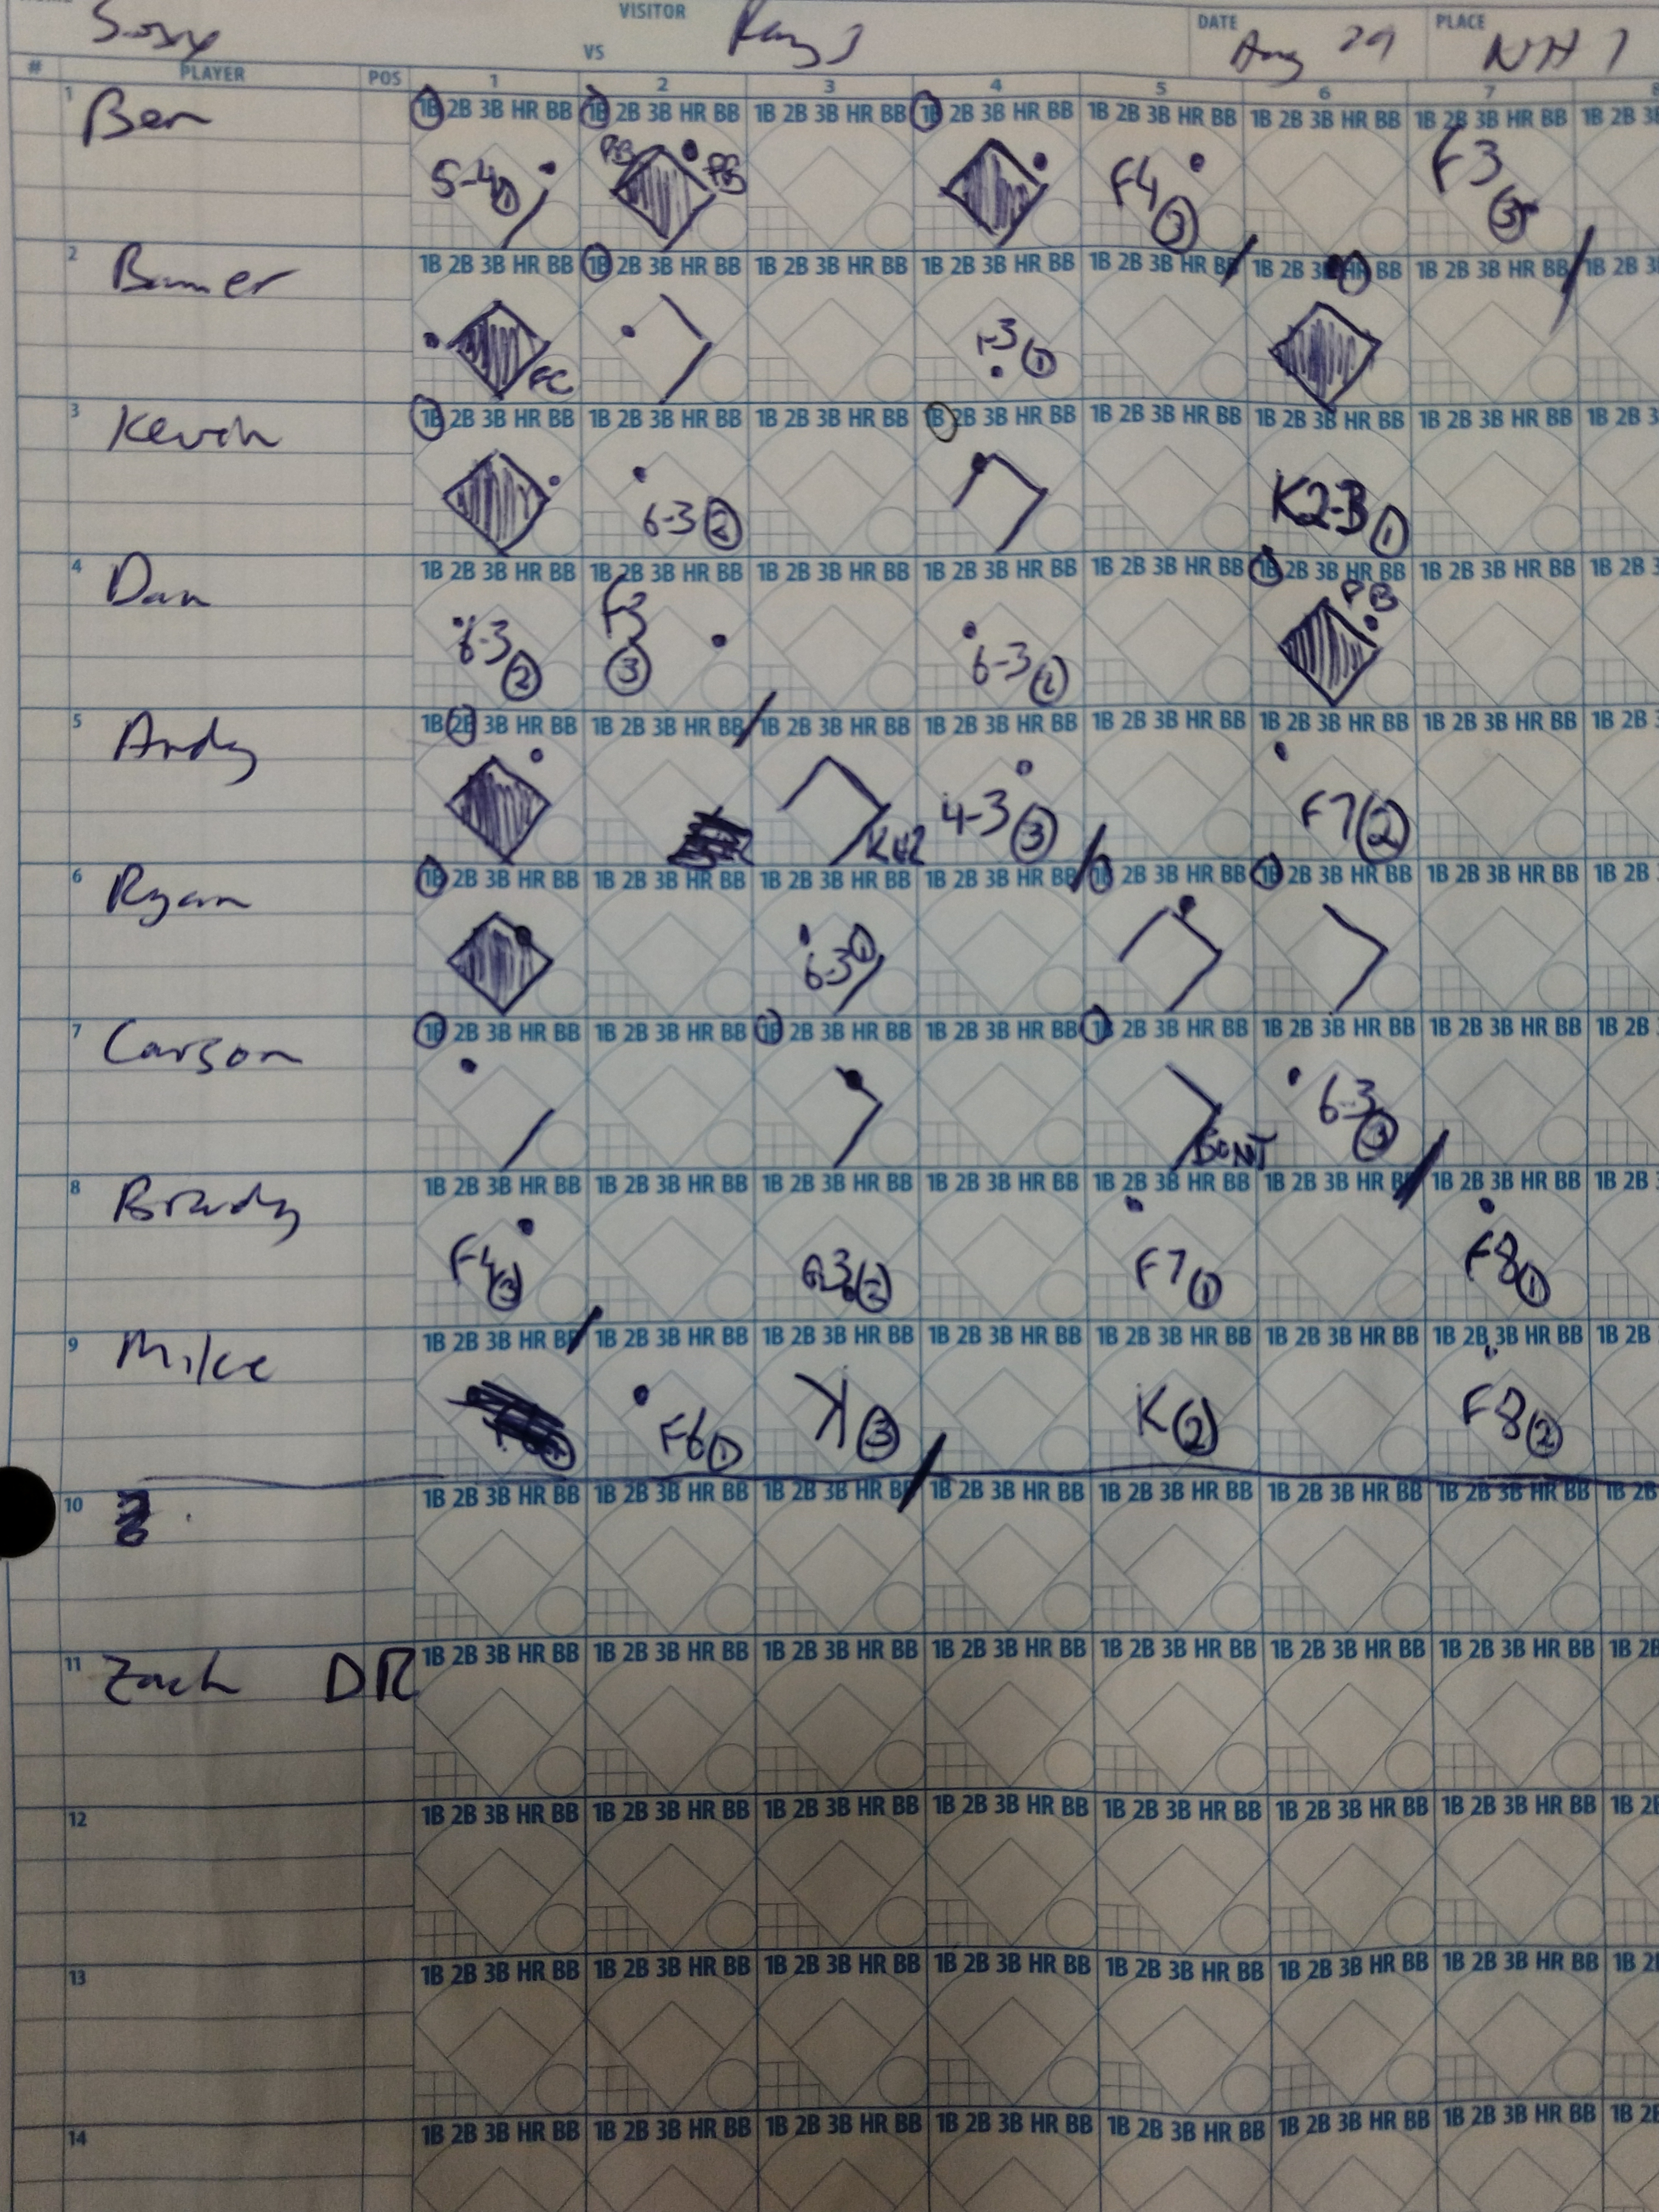 VISITOR DATE PLACE
VS Aug 29 NH 1
# PLAYER POS 1 2 3 4 5 6 7 8
1 Ben 1B 2B 3B HR BB 1B 2B 3B HR BB 1B 2B 3B HR BB 1B 2B 3B HR BB 1B 2B 3B HR BB 1B 2B 3B HR BB 1B 2B 3B HR BB 1B 2B 3B
5-4 1 PB PB F4 3 F3 3
2 1B 2B 3B HR BB 1B 2B 3B HR BB 1B 2B 3B HR BB 1B 2B 3B HR BB 1B 2B 3B HR BB 1B 2B 3B HR BB 1B 2B 3B HR BB 1B 2B 3
FC 1-3 1
3 Kevin 1B 2B 3B HR BB 1B 2B 3B HR BB 1B 2B 3B HR BB 1B 2B 3B HR BB 1B 2B 3B HR BB 1B 2B 3B HR BB 1B 2B 3B HR BB 1B 2B 3
6-3 2 K2-3 1
4 Dan 1B 2B 3B HR BB 1B 2B 3B HR BB 1B 2B 3B HR BB 1B 2B 3B HR BB 1B 2B 3B HR BB 1B 2B 3B HR BB 1B 2B 3B HR BB 1B 2B 3
6-3 2 F3 3 6-3 2 PB
5 Andy 1B 2B 3B HR BB 1B 2B 3B HR BB 1B 2B 3B HR BB 1B 2B 3B HR BB 1B 2B 3B HR BB 1B 2B 3B HR BB 1B 2B 3B HR BB 1B 2B
4-3 3 F7 2
6 Ryan 1B 2B 3B HR BB 1B 2B 3B HR BB 1B 2B 3B HR BB 1B 2B 3B HR BB 1B 2B 3B HR BB 1B 2B 3B HR BB 1B 2B 3B HR BB 1B 2B
6-3 1
7 Carson 1B 2B 3B HR BB 1B 2B 3B HR BB 1B 2B 3B HR BB 1B 2B 3B HR BB 1B 2B 3B HR BB 1B 2B 3B HR BB 1B 2B 3B HR BB 1B 2B
BUNT 6-3 3
8 Brady 1B 2B 3B HR BB 1B 2B 3B HR BB 1B 2B 3B HR BB 1B 2B 3B HR BB 1B 2B 3B HR BB 1B 2B 3B HR BB 1B 2B 3B HR BB 1B 2B
F4 3 F7 1 F8 1
9 Mike 1B 2B 3B HR BB 1B 2B 3B HR BB 1B 2B 3B HR BB 1B 2B 3B HR BB 1B 2B 3B HR BB 1B 2B 3B HR BB 1B 2B 3B HR BB 1B 2B
F6 1 K 3 K 2 F8 2
10 1B 2B 3B HR BB 1B 2B 3B HR BB 1B 2B 3B HR BB 1B 2B 3B HR BB 1B 2B 3B HR BB 1B 2B 3B HR BB 1B 2B 3B HR BB 1B 2B
11 Zach DR 1B 2B 3B HR BB 1B 2B 3B HR BB 1B 2B 3B HR BB 1B 2B 3B HR BB 1B 2B 3B HR BB 1B 2B 3B HR BB 1B 2B 3B HR BB 1B 2B
12 1B 2B 3B HR BB 1B 2B 3B HR BB 1B 2B 3B HR BB 1B 2B 3B HR BB 1B 2B 3B HR BB 1B 2B 3B HR BB 1B 2B 3B HR BB 1B 2B
13 1B 2B 3B HR BB 1B 2B 3B HR BB 1B 2B 3B HR BB 1B 2B 3B HR BB 1B 2B 3B HR BB 1B 2B 3B HR BB 1B 2B 3B HR BB 1B 2
14 1B 2B 3B HR BB 1B 2B 3B HR BB 1B 2B 3B HR BB 1B 2B 3B HR BB 1B 2B 3B HR BB 1B 2B 3B HR BB 1B 2B 3B HR BB 1B 2